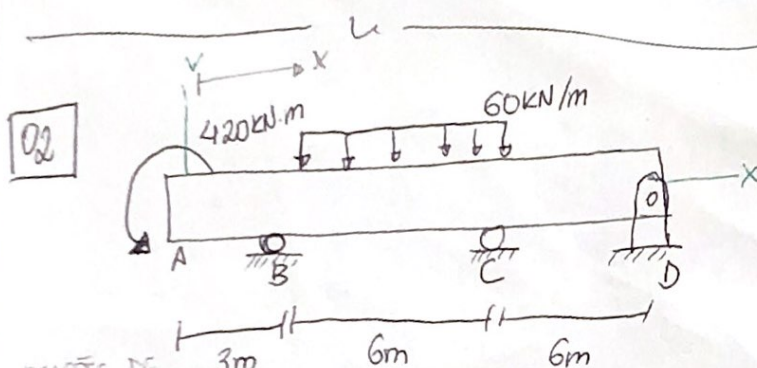 Y
X
02
420KN.m
60KN/m
X
A
B
C
D
3m
6m
6m